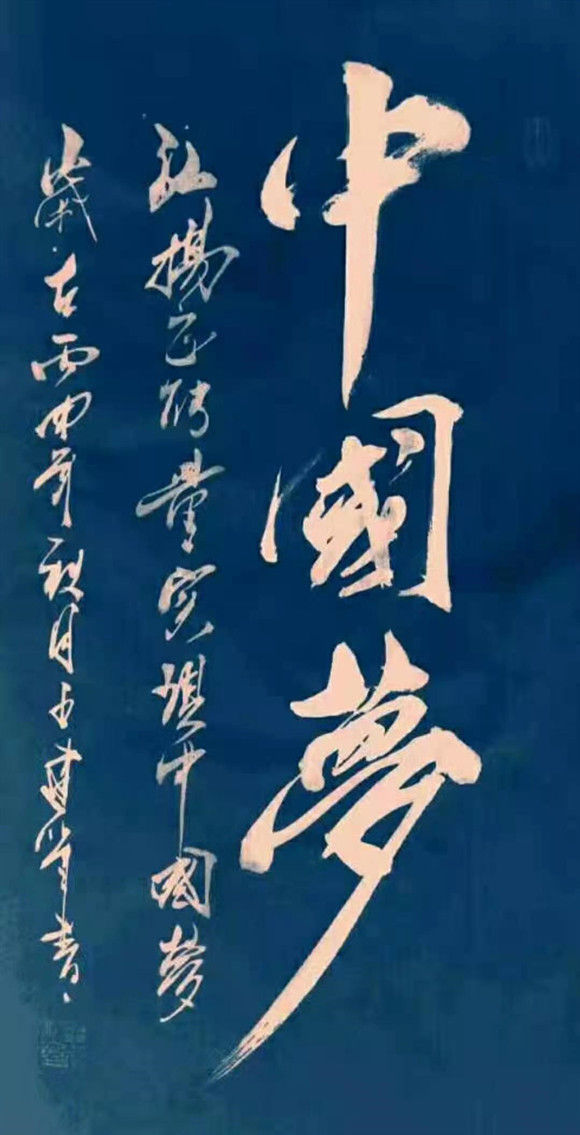 中國夢
弘揚正能量實現中國夢
歲在丙申年秋月